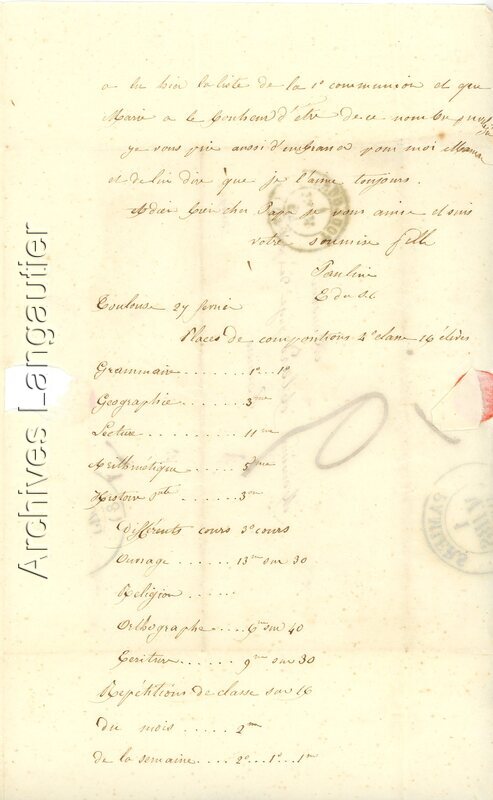 a lu hier la liste de la 1e communion et que
Marie a le bonheur d'être de ce nombre
je vous prie aussi d'embrasser pour moi Maman
et de lui dire que je l'aime toujours.
Adieu bien cher Papa je vous aime et suis
votre soumise fille
Pauline
E du S C
Toulouse 27 fevrier
Places de compositions 4e classe 16 élèves
Grammaire ........ 1e..1e
Geographie ........ 3me
Lecture ........ 11me
Arithmétique ..... 5me
Histoire ..... 3me
différents cours 3e cours
Ouvrage ....... 13me sur 30
Religion ......
Orthographe ..... 6me sur 40
Ecriture ...... 9me sur 30
Répétitions de classe sur 16
du mois ...... 2me
de la semaine .... 2e...1e..1me
Archives Langautier